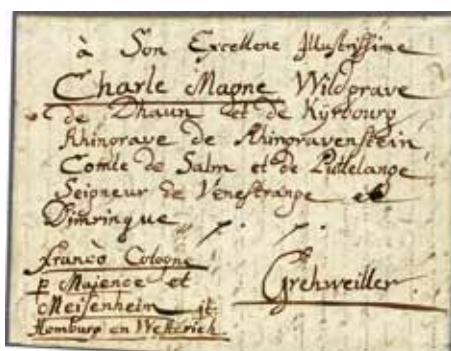 à Son Excellene Illustrissime
Charle Magne Wildgrave
de Dhaun et de Kÿrbourg
Rhingrave de Rhingravenstein
Comte de Salm et de Puttelange
Seigneur de Venestrange et
Dimringue
Franco Cologne
p Majence et
Meisenheim it:
Homburg en Wetterich
Grehweiller